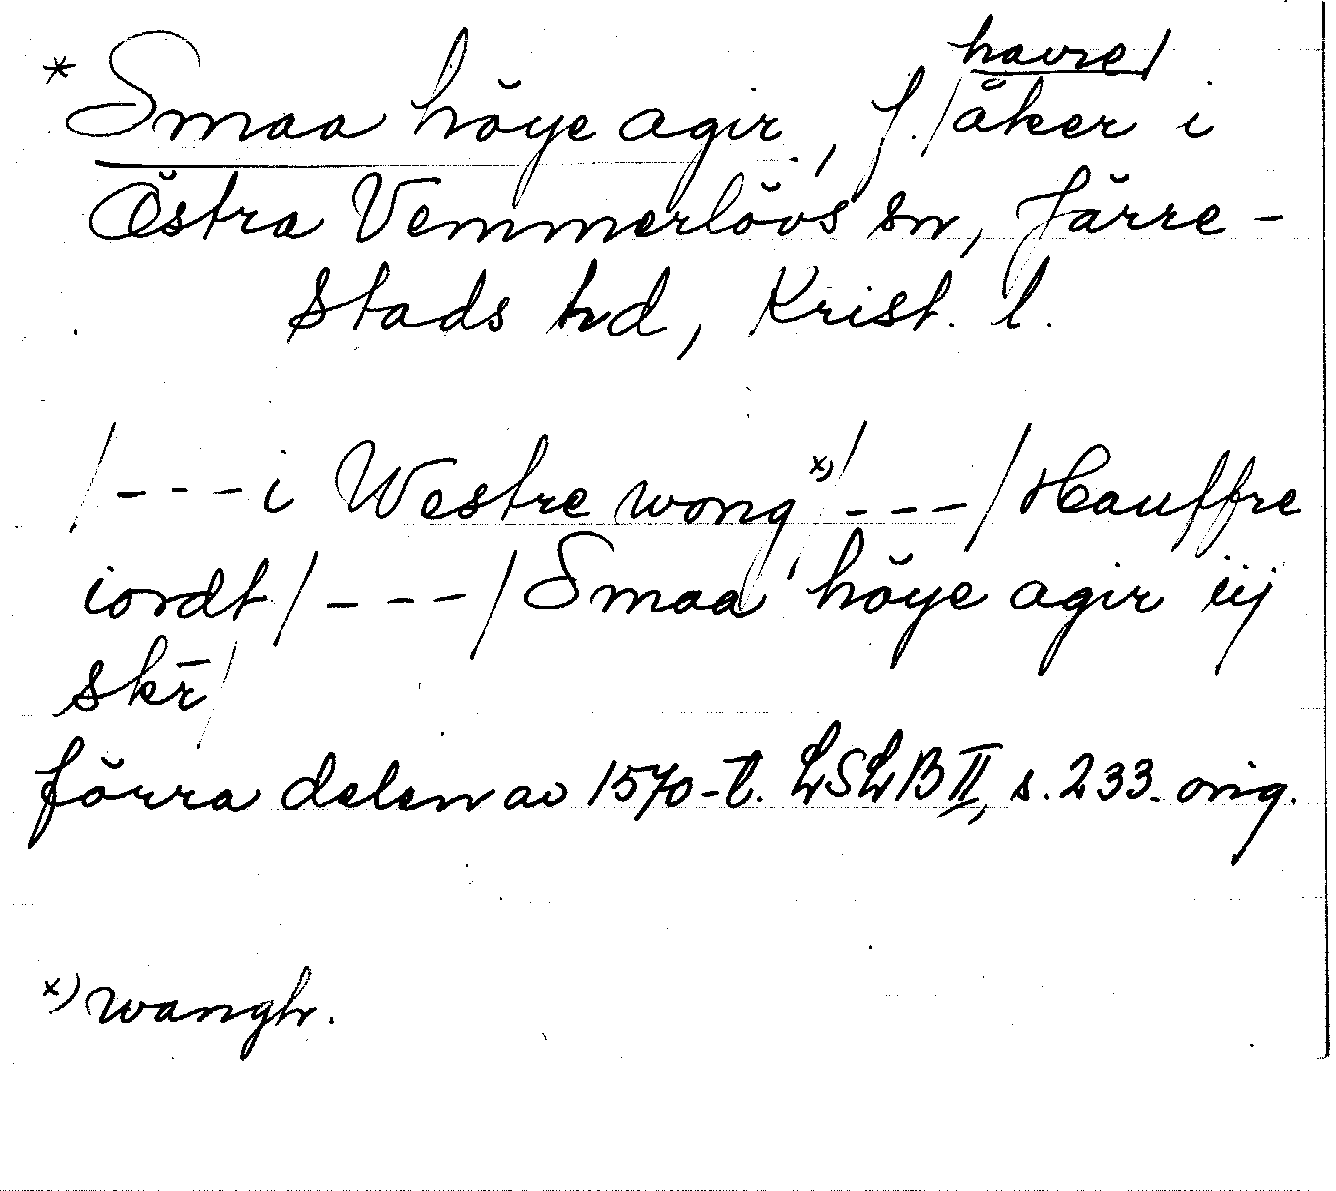 havre/
*Smaa höye agir, f. /åker i
Östra Vemmerlövs sn, Järre-
stads hd, Krist. l.
/---i Westre wong x)/ ---/Hauffre
iordt/---/Smaa höye agir iij
skr̄/
förra delen av 1570-t. LSLB II, s. 233. orig.
x) wangh.